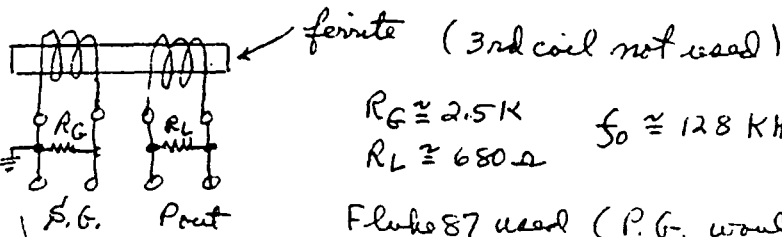 ferrite (3rd coil not used)
RG ≅ 2.5K
f₀ ≅ 128 KH
RL ≅ 680 Ω
RG RL
S.G. Pout
Fluke 87 used (P.G. woul